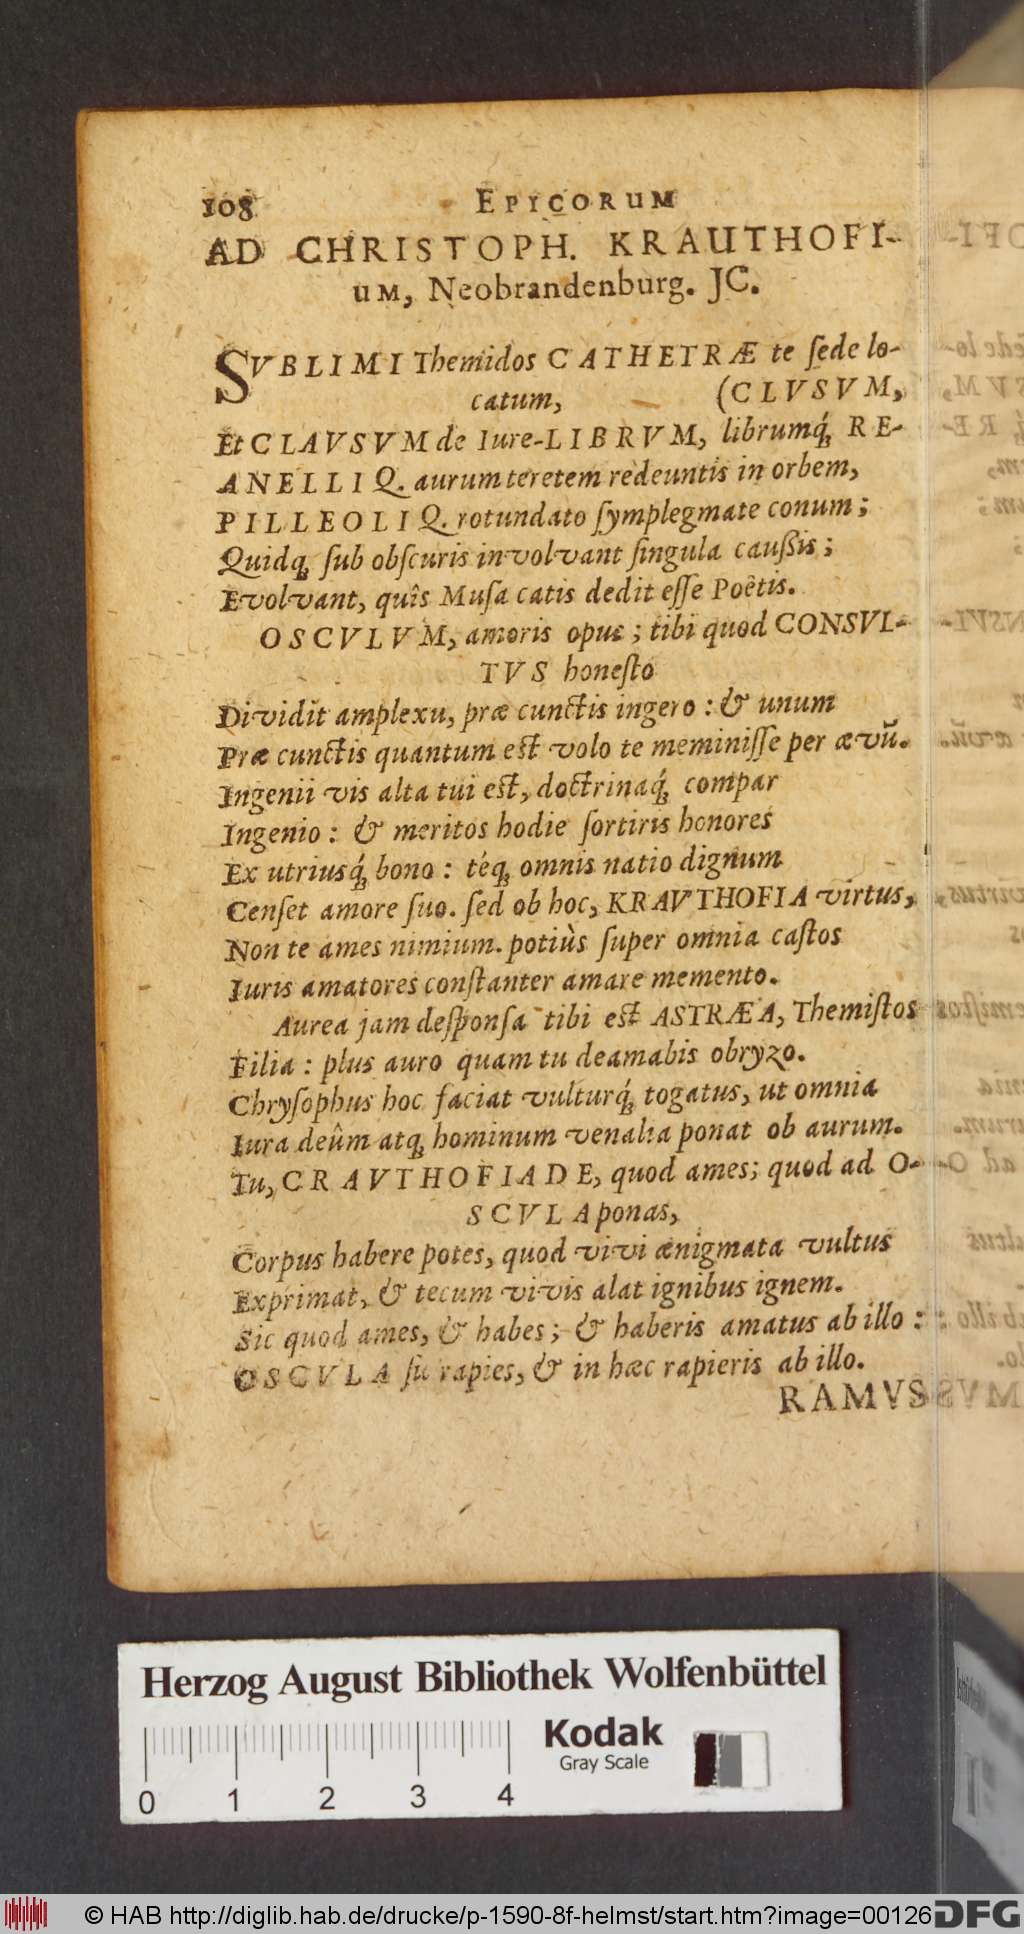 108 EPICORUM
AD CHRISTOPH. KRAUTHOFI-
UM, Neobrandenburg. JC.
SVBLIMI Themidos CATHETRÆ te ſede lo-
catum, (CLVSVM,
Et CLAVSVM de Iure-LIBRVM, librumq́ꝫ RE-
ANELLIQ. aurum teretem redeuntis in orbem,
PILLEOLIQ. rotundato ſymplegmate conum;
Quidqꝫ ſub obſcuris involvant ſingula cauſſis;
Evolvant, quîs Muſa catis dedit eſſe Poêtis.
OSCVLVM, amoris opus; tibi quod CONSVL-
TVS honeſto
Dividit amplexu, præ cunctis ingero: & unum
Præ cunctis quantum est volo te meminiſſe per ævũ.
Ingenii vis alta tui est, doctrinaq́ꝫ compar
Ingenio: & meritos hodie ſortiris honores
Ex utriusq́ꝫ bono: téqꝫ omnis natio dignum
Cenſet amore ſuo. ſed ob hoc, KRAVTHOFIA virtus,
Non te ames nimium. potiùs ſuper omnia caſtos
Iuris amatores conſtanter amare memento.
Aurea jam deſponſa tibi est ASTRÆA, Themiſtos
Filia: plus auro quam tu deamabis obryzo.
Chryſophus hoc faciat vulturq́ꝫ togatus, ut omnia
Iura deûm atqꝫ hominum venalia ponat ob aurum.
Tu, CRAVTHOFIADE, quod ames; quod ad O-
SCVLA ponas,
Corpus habere potes, quod vivi ænigmata vultus
Exprimat, & tecum vivis alat ignibus ignem.
Sic quod ames, & habes; & haberis amatus ab illo:
OSCVLA ſu rapies, & in hæc rapieris ab illo.
RAMVS
Herzog August Bibliothek Wolfenbüttel
Kodak
Gray Scale
0 1 2 3 4
© HAB http://diglib.hab.de/drucke/p-1590-8f-helmst/start.htm?image=00126
DFG